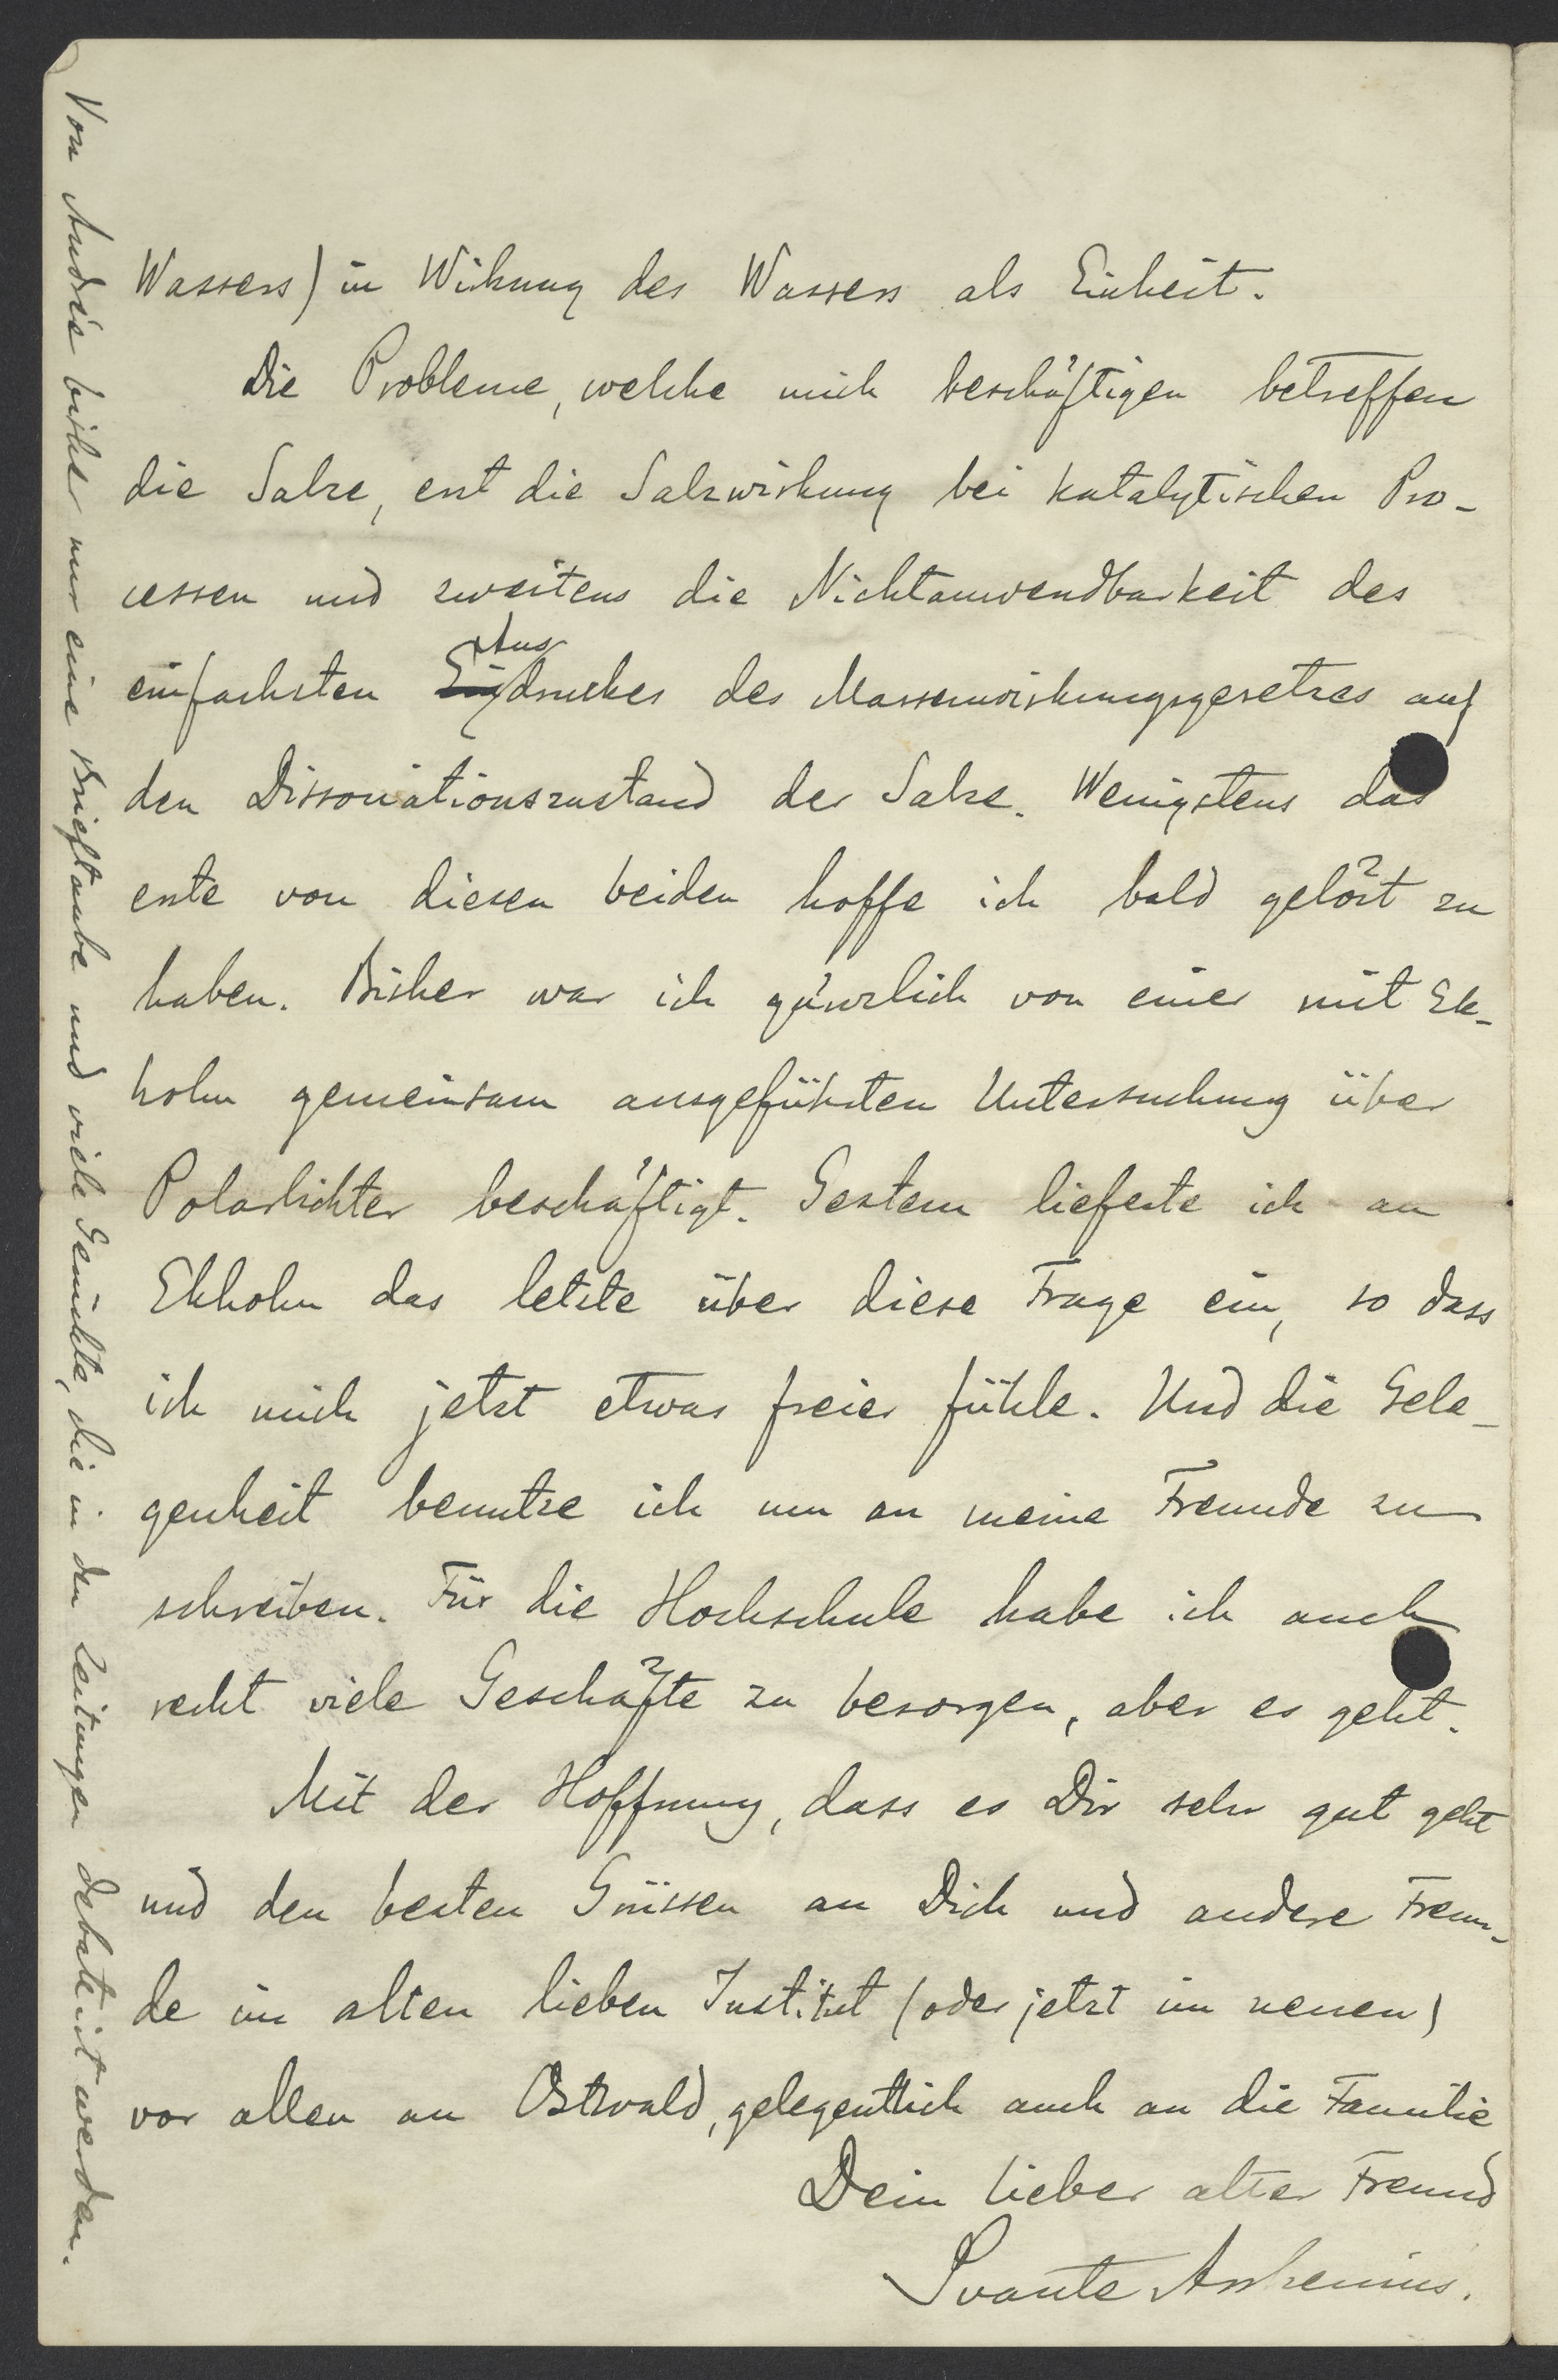 Wassers) in Wirkung des Wassers als Einheit.
Die Probleme, welche mich beschäftigen betreffen
die Salze, erst die Salzwirkung bei katalytischen Pro-
cessen und zweitens die Nichtanwendbarkeit des
einfachsten Ein Ausdruckes des Massenwirkungsgesetzes auf
den Dissociationszustand der Salze. Wenigstens das
erste von diesen beiden hoffe ich bald gelöst zu
haben. Bisher war ich gänzlich von einer mit Ek-
holm gemeinsam ausgeführten Untersuchung über
Polarlichter beschäftigt. Gestern lieferte ich an
Ekholm das letzte über diese Frage ein, so dass
ich mich jetzt etwas freier fühle. Und die Gele-
genheit benutze ich um an meine Freunde zu
schreiben. Für die Hochschule habe ich auch
recht viele Geschäfte zu besorgen, aber es geht.
Mit der Hoffnung, dass es Dir sehr gut geht
und den besten Grüssen an Dich und andere Freun-
de im alten lieben Institut (oder jetzt im neuen)
vor allen an Ostwald, gelegentlich auch an die Familie
Dein lieber alter Freund
Svante Arrhenius.
Von Andrée bisher nur eine Brieftaube und viele Gerüchte, die in den Zeitungen debatirt werden.